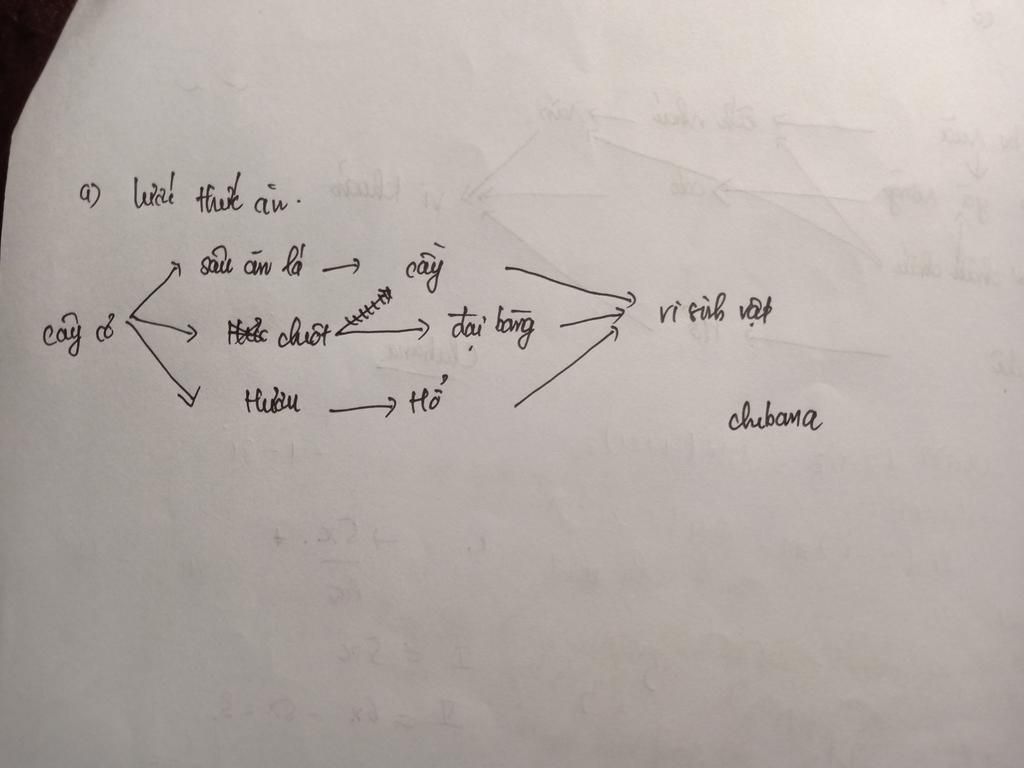 a) lưới thức ăn.
sâu ăn lá → cầy
cây cỏ chuột → đại bàng vi sinh vật
Hươu → Hổ
chubana